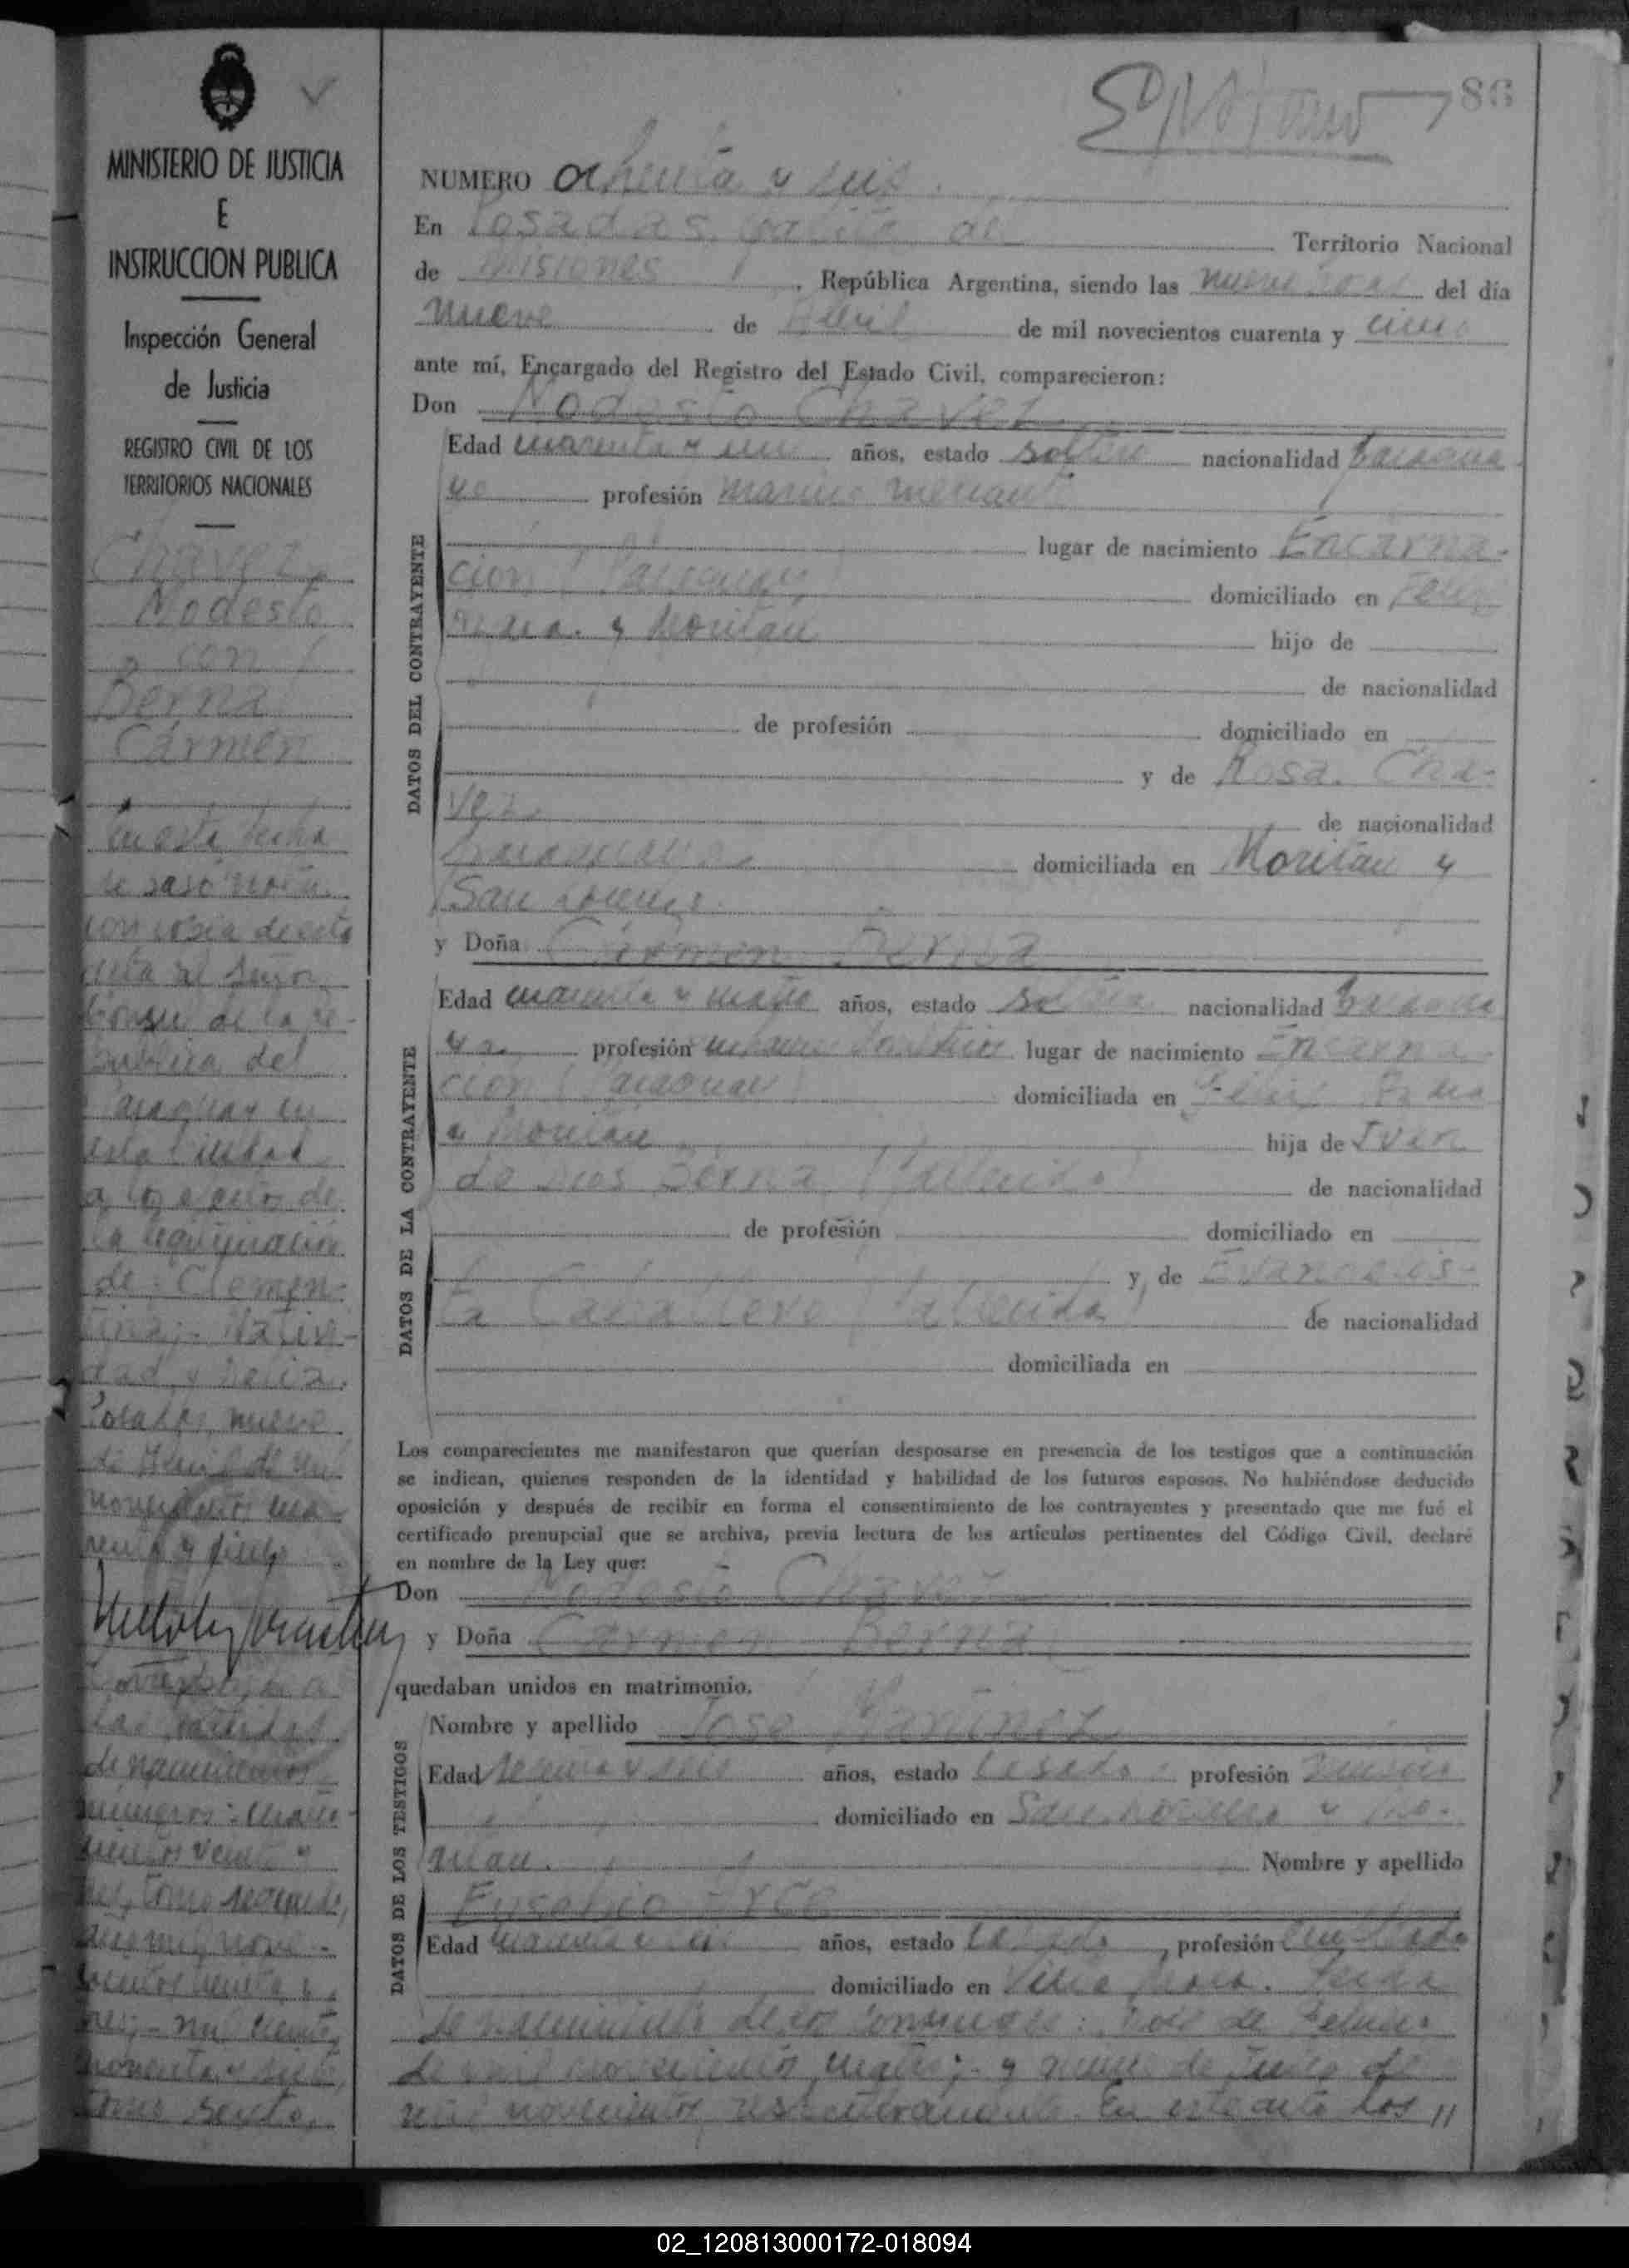 86
MINISTERIO DE JUSTICIA
E
INSTRUCCION PUBLICA
Inspección General
de Justicia
REGISTRO CIVIL DE LOS
TERRITORIOS NACIONALES
Chavez
Modesto
con
Berna
Cármen
En esta fecha
se pasó nota
con copia de esta
acta al Señor
Consul de la Re-
publica del
Paraguay en
esta Ciudad
a los efectos de
la legitimación
de: Clemen-
tina; Nativi-
dad y
Posadas, nueve
de Abril de mil
novecientos cua-
renta y cinco
las partidas
de nacimientos
números: cuatro-
cientos veinte y
tres, tomo segundo,
año mil nove-
cientos treinta y
tres; - mil ciento
noventa y siete,
tomo sexto,
NUMERO ochenta y seis.
En Posadas, capital del Territorio Nacional
de Misiones, República Argentina, siendo las nueve horas del día
nueve de Abril de mil novecientos cuarenta y cinco
ante mí, Encargado del Registro del Estado Civil, comparecieron:
Don Modesto Chavez
DATOS DEL CONTRAYENTE
Edad cuarenta y un años, estado soltero nacionalidad paragua-
yo profesión marino mercante
lugar de nacimiento Encarna-
cion (Paraguay) domiciliado en
y Moritan hijo de
de nacionalidad
de profesión domiciliado en
y de Rosa Cha-
vez de nacionalidad
paraguaya domiciliada en Moritan y
San Lorenzo
y Doña Cármen Berna
DATOS DE LA CONTRAYENTE
Edad cuarenta y cuatro años, estado soltera nacionalidad paragua-
ya profesión quehacer doméstico lugar de nacimiento Encarna-
cion (Paraguay) domiciliada en Felix
y Moritan hija de Juan
de Dios Berna (fallecido) de nacionalidad
de profesión domiciliado en
y de Evangelis-
ta Caballero (fallecida) de nacionalidad
domiciliada en
Los comparecientes me manifestaron que querían desposarse en presencia de los testigos que a continuación
se indican, quienes responden de la identidad y habilidad de los futuros esposos. No habiéndose deducido
oposición y después de recibir en forma el consentimiento de los contrayentes y presentado que me fué el
certificado prenupcial que se archiva, previa lectura de los artículos pertinentes del Código Civil, declaré
en nombre de la Ley que:
Don Modesto Chavez
y Doña Carmen Berna
quedaban unidos en matrimonio.
DATOS DE LOS TESTIGOS
Nombre y apellido José Martinez
Edad años, estado casado profesión
domiciliado en San Lorenzo y Mo-
ritan. Nombre y apellido
Eusebio Arce
Edad años, estado casado, profesión empleado
domiciliado en Villa
de nacimiento de los conyuges: de Febrero
de mil novecientos cuatro; y nueve de Junio de
mil novecientos, respectivamente. En este acto los //
02_120813000172-018094